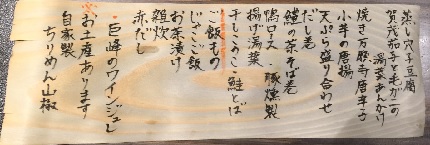 蒸し穴子豆腐
賀茂茄子と毛ガニの
湯葉あんかけ
焼き万願寺唐辛子
小芋の唐揚
天ぷら盛り合わせ
だし巻
鱧の茶そば巻
鴨ロース 豚燻製
揚げ湯葉
干しこのこ・鮭とば
ご飯もの
じゃこご飯
お茶漬け
雑炊
赤だし
巨峰のワインジュレ
お土産あります
自家製
ちりめん山椒